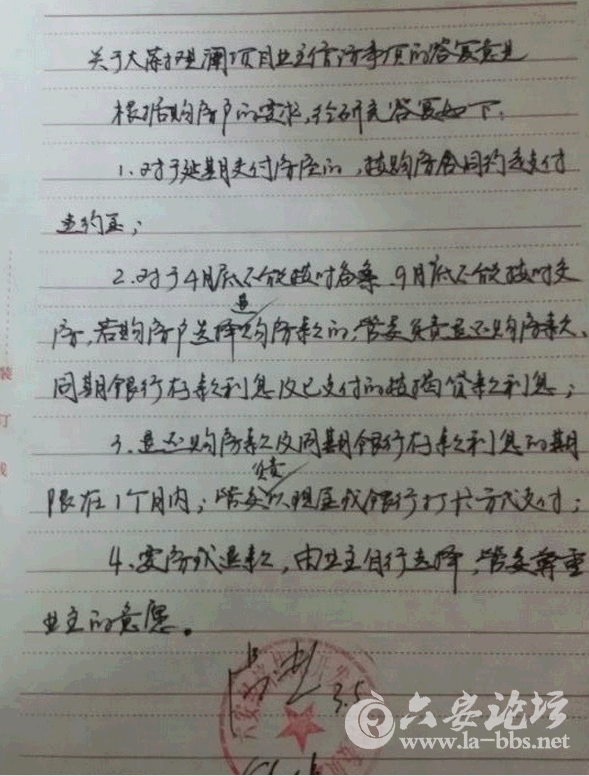 关于大蒋观澜项目业主信访事项的答复意见
根据购房户的要求,经研究答复如下:
1.对于延期交付房屋的,按购房合同约定支付
违约金;
2.对于4月底不能按时备案、9月底不能按时交
房,若购房户选择退购房款的,管委负责退还购房款、
同期银行存款利息及已支付的按揭贷款利息;
3.退还购房款及同期银行存款利息的期
限在1个月内;管委负责以现金或银行打卡方式支付;
4、要房或退款,由业主自行选择,管委尊重
业主的意愿。
3.5
装
订
线
六安论坛
www.la-bbs.net